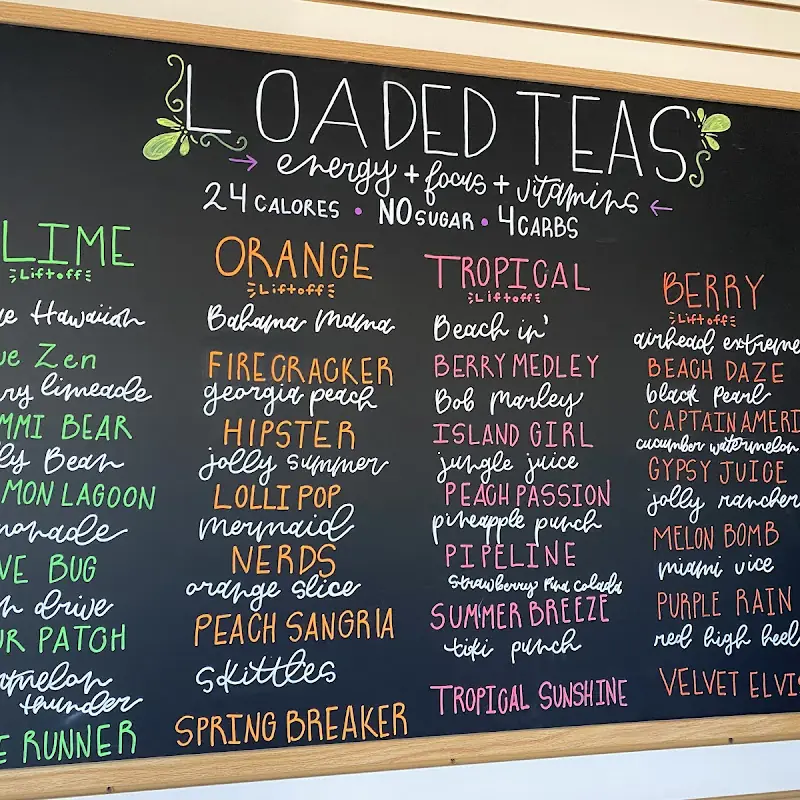 LOADED TEAS
→ energy + focus + vitamins ←
24 CALORES • NO SUGAR • 4 CARBS
LIME
Liftoff
Hawaiian
Zen
limeade
BEAR
Bean
LAGOON
BUG
drive
PATCH
thunder
RUNNER
ORANGE
Liftoff
Bahama Mama
FIRECRACKER
georgia peach
HIPSTER
jolly summer
LOLLIPOP
mermaid
NERDS
orange slice
PEACH SANGRIA
skittles
SPRING BREAKER
TROPICAL
Liftoff
Beach in'
BERRY MEDLEY
Bob Marley
ISLAND GIRL
jungle juice
PEACH PASSION
pineapple punch
PIPELINE
strawberry pina colada
SUMMER BREEZE
tiki punch
TROPICAL SUNSHINE
BERRY
Liftoff
airhead extreme
BEACH DAZE
black pearl
CAPTAIN AMERI
cucumber watermelon
GYPSY JUICE
jolly rancher
MELON BOMB
miami vice
PURPLE RAIN
red high heel
VELVET ELVIS